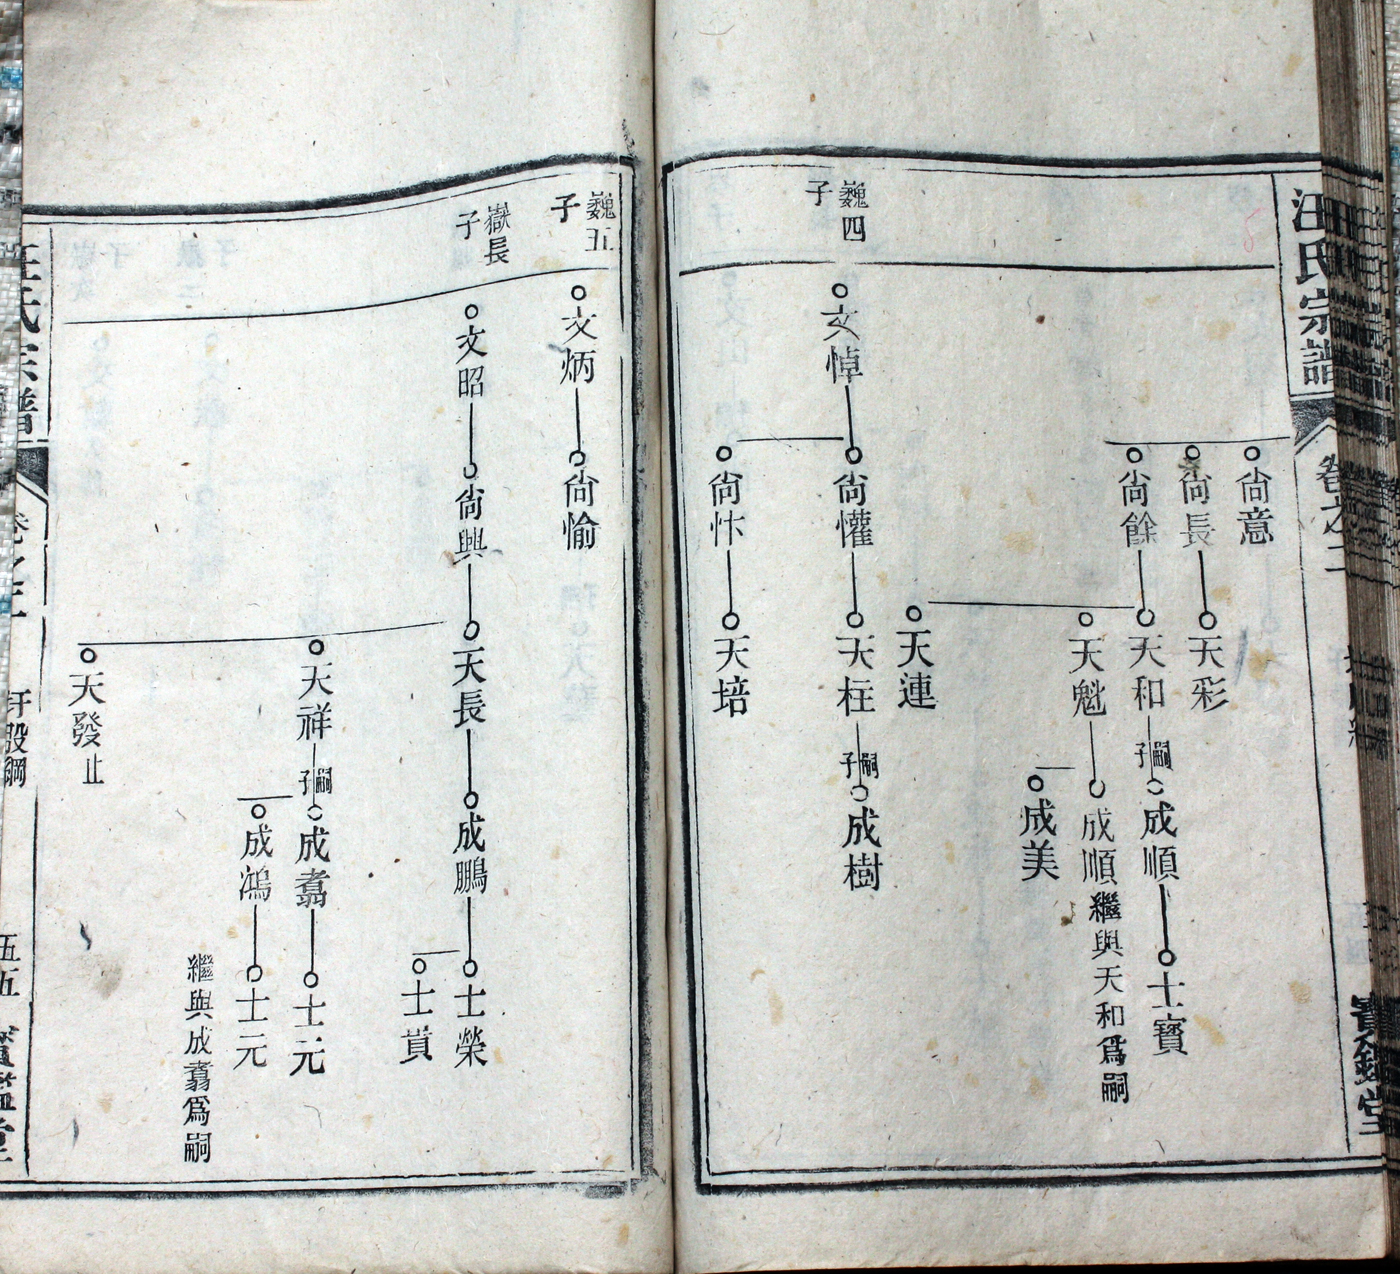 汪氏宗譜
卷之二
寶鑑堂
尙意
尙長
天彩
尙餘
天和
嗣子
成順
士寶
天魁
成順繼與天和爲嗣
成美
天連
巍四子
文悼
尙懽
天柱
嗣子
成樹
尙忭
天培
巍五子
文炳
尙愉
嶽長子
文昭
尙興
天長
成鵬
士榮
士貰
天祥
嗣子
成翥
士元
成鴻
士元
繼與成翥爲嗣
天發止
汪氏宗譜
圩股綱
五五
寶鑑堂